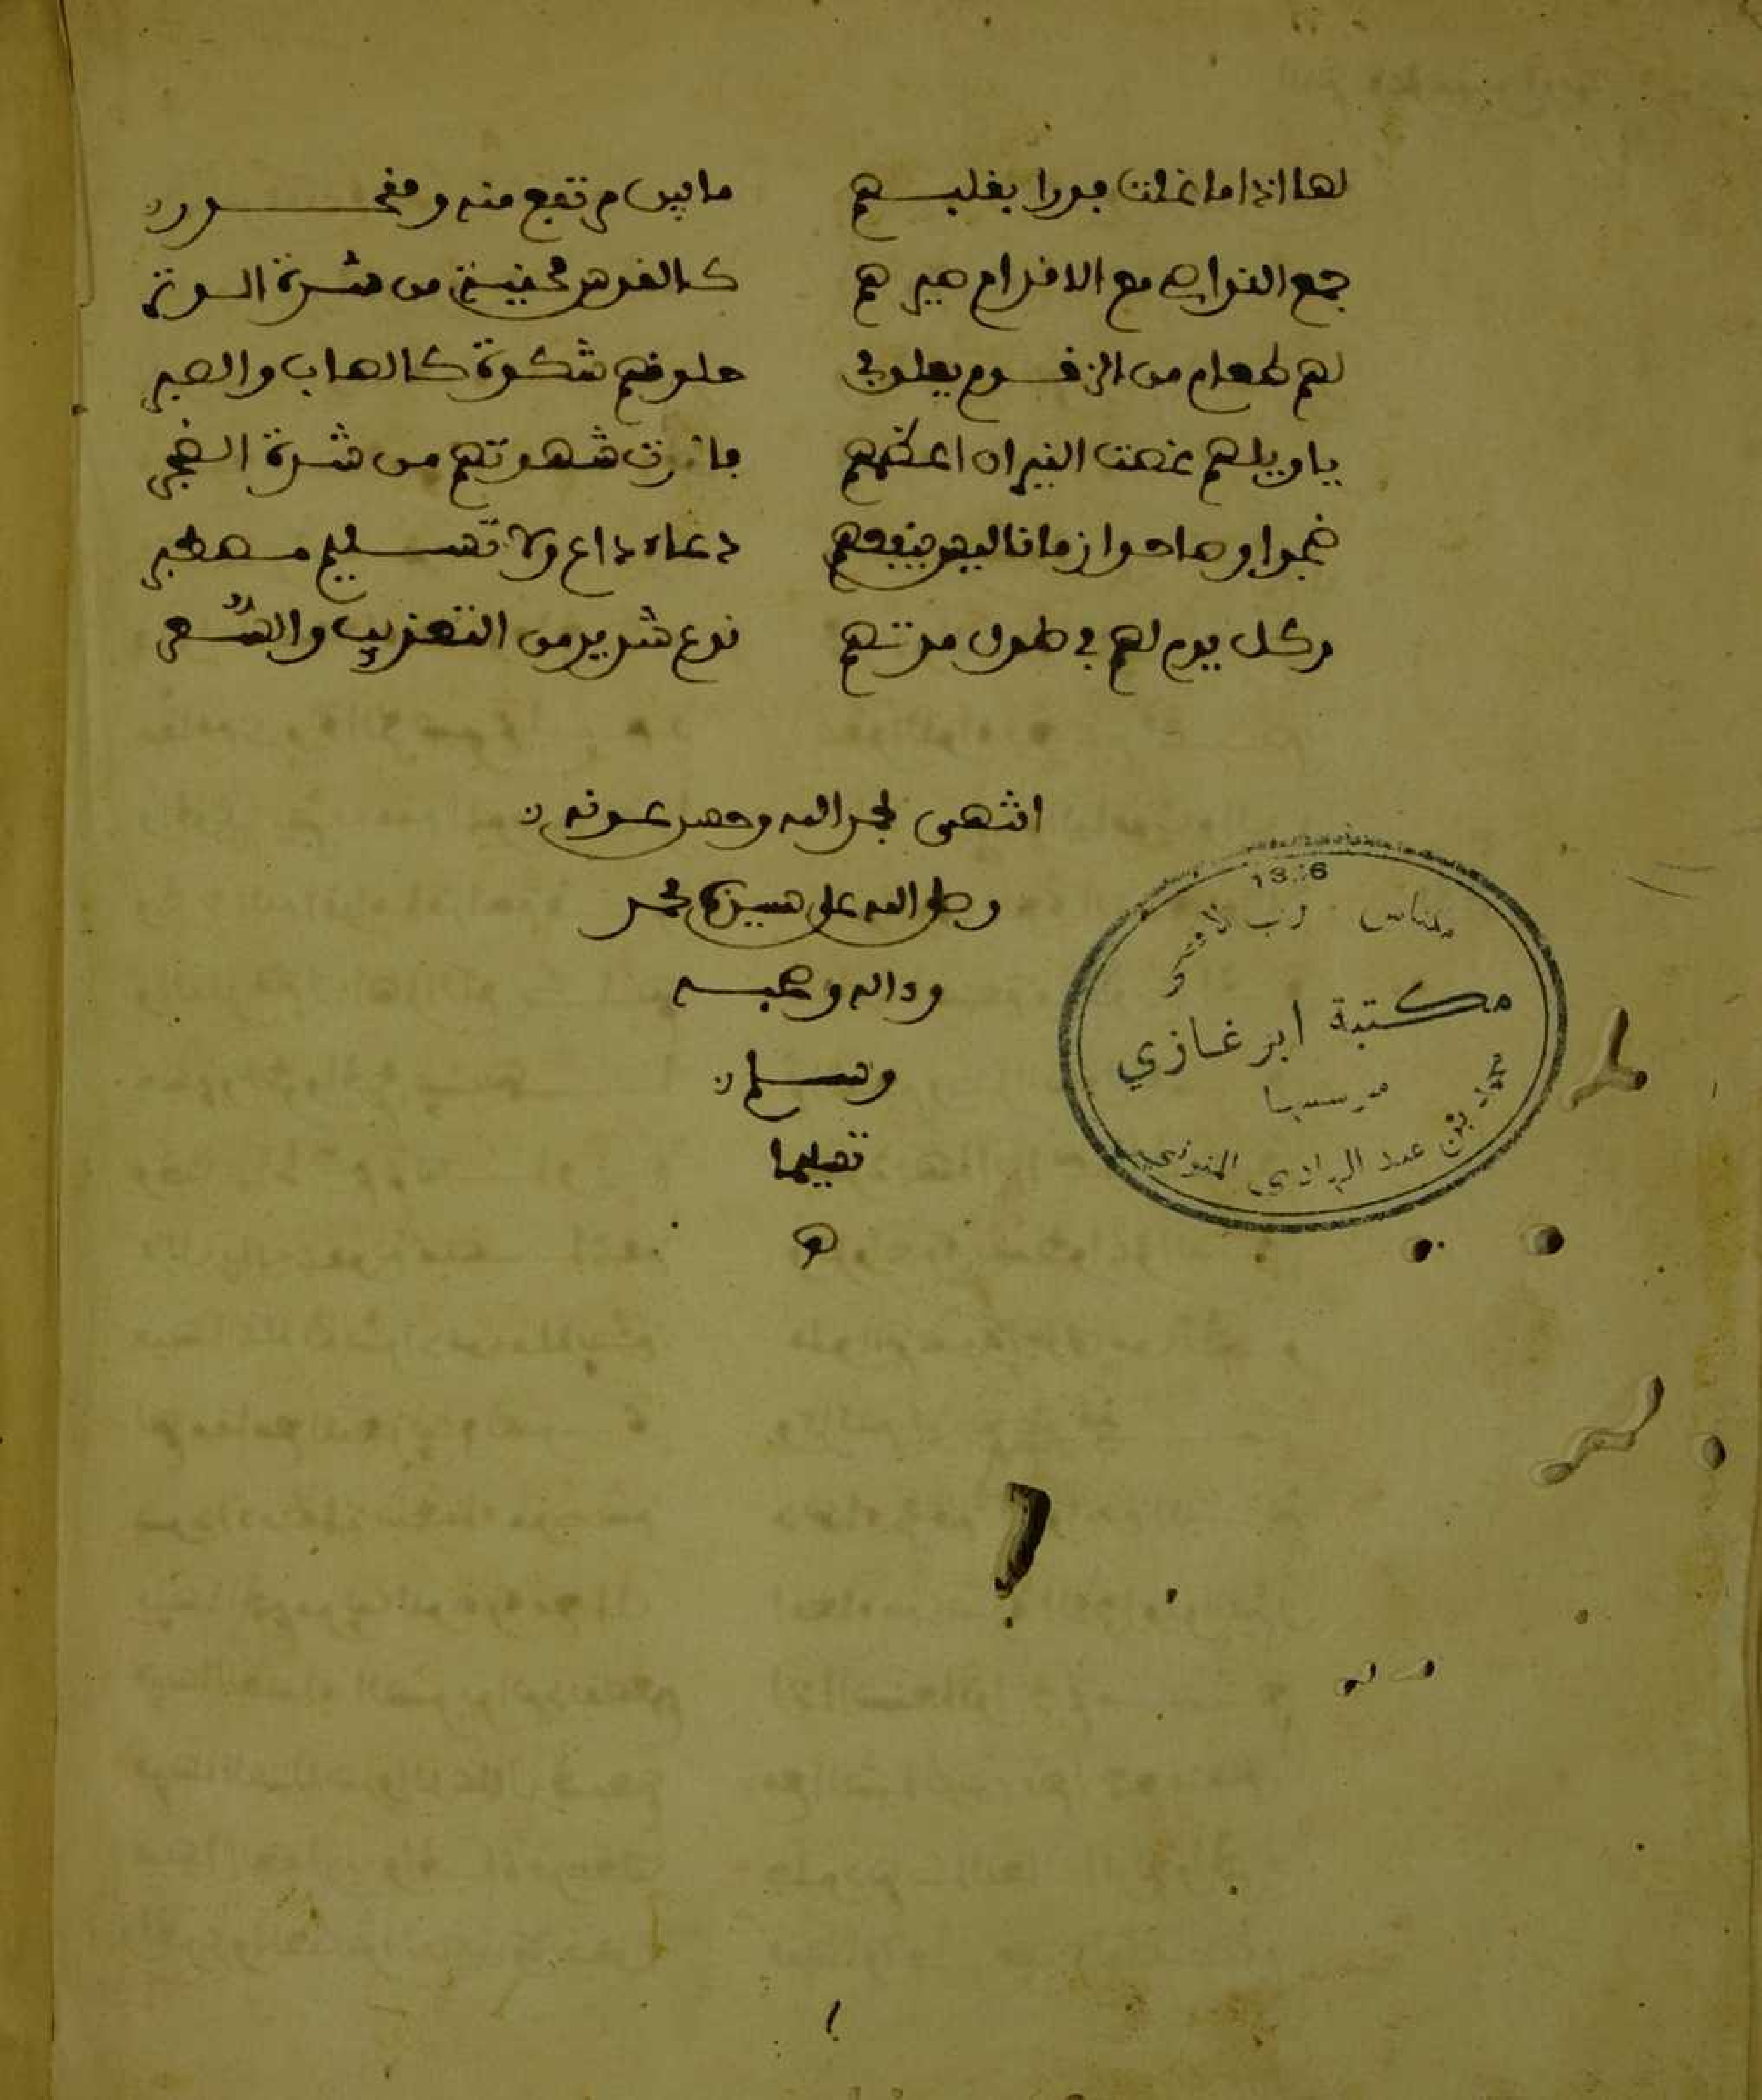 لها اذا ما غلت فورا يقلبهم ما بين مرتفع منه ومنحدر
جمع النواصي مع الاقدام صيرهم كالقوس محنية من شدة الوتر
لهم طعام من الزقوم يعلق في حلوقهم شوكه كالصاب والصبر
يا ويلهم عضت النيران اعظمهم شهوتهم من شدة الضجر
ضجوا وصاحوا زمانا ليس ينفعهم دعاء داع ولا تسليم مصطبر
وكل يوم لهم في طول مدتهم نوع شديد من التعذيب والسعر
انتهى بحمد الله وحسن عونه
وصلى الله على سيدنا محمد
وءاله وصحبه
وسلم
تسليما
ه
مكناس
مكتبة ابن غازي
محمد بن عبد الهادي المنوني